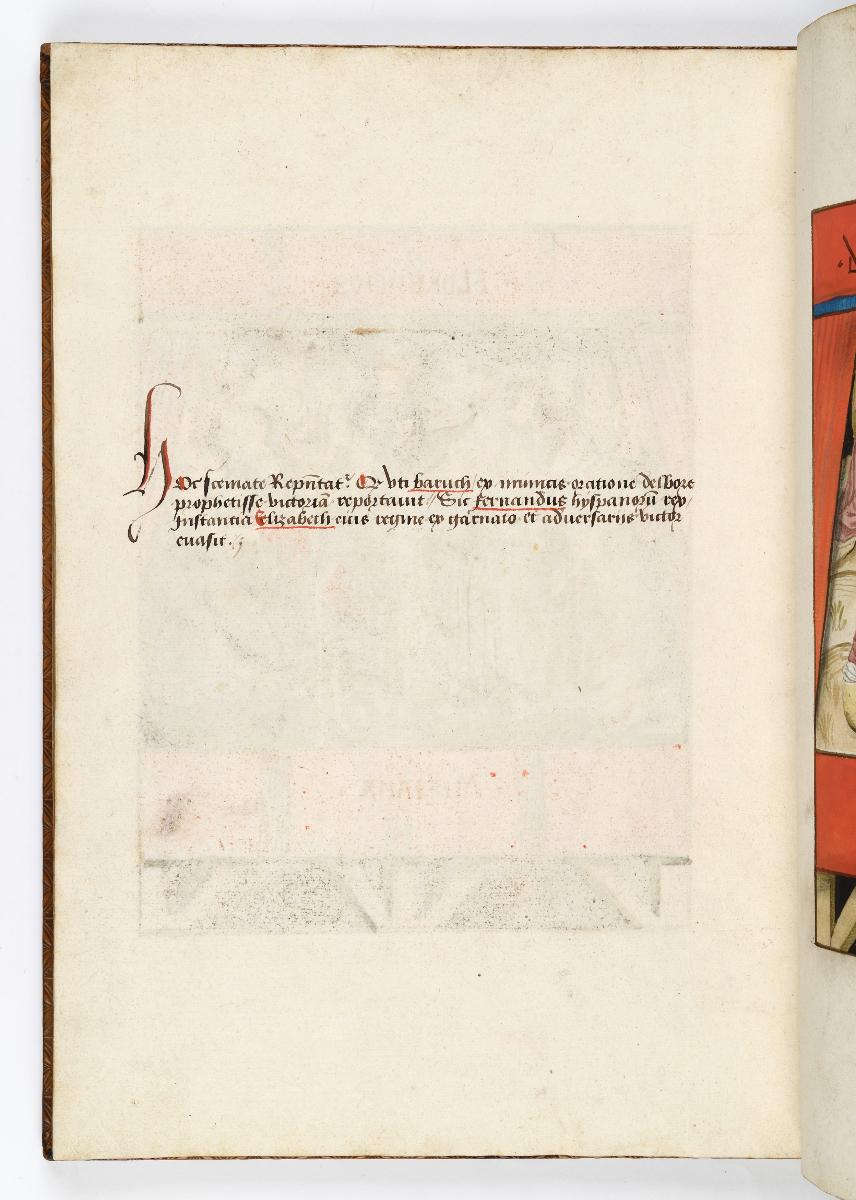 Hoc scemate Rep̄ntatʳ. Qꝫ vti baruch ex inimicis oratione delbore
prophetisse victoriā reportauit / Sic fernandus hyspanorū rex /
Instantia Elizabeth eius regine ex garnato et aduersariis victor
euasit.